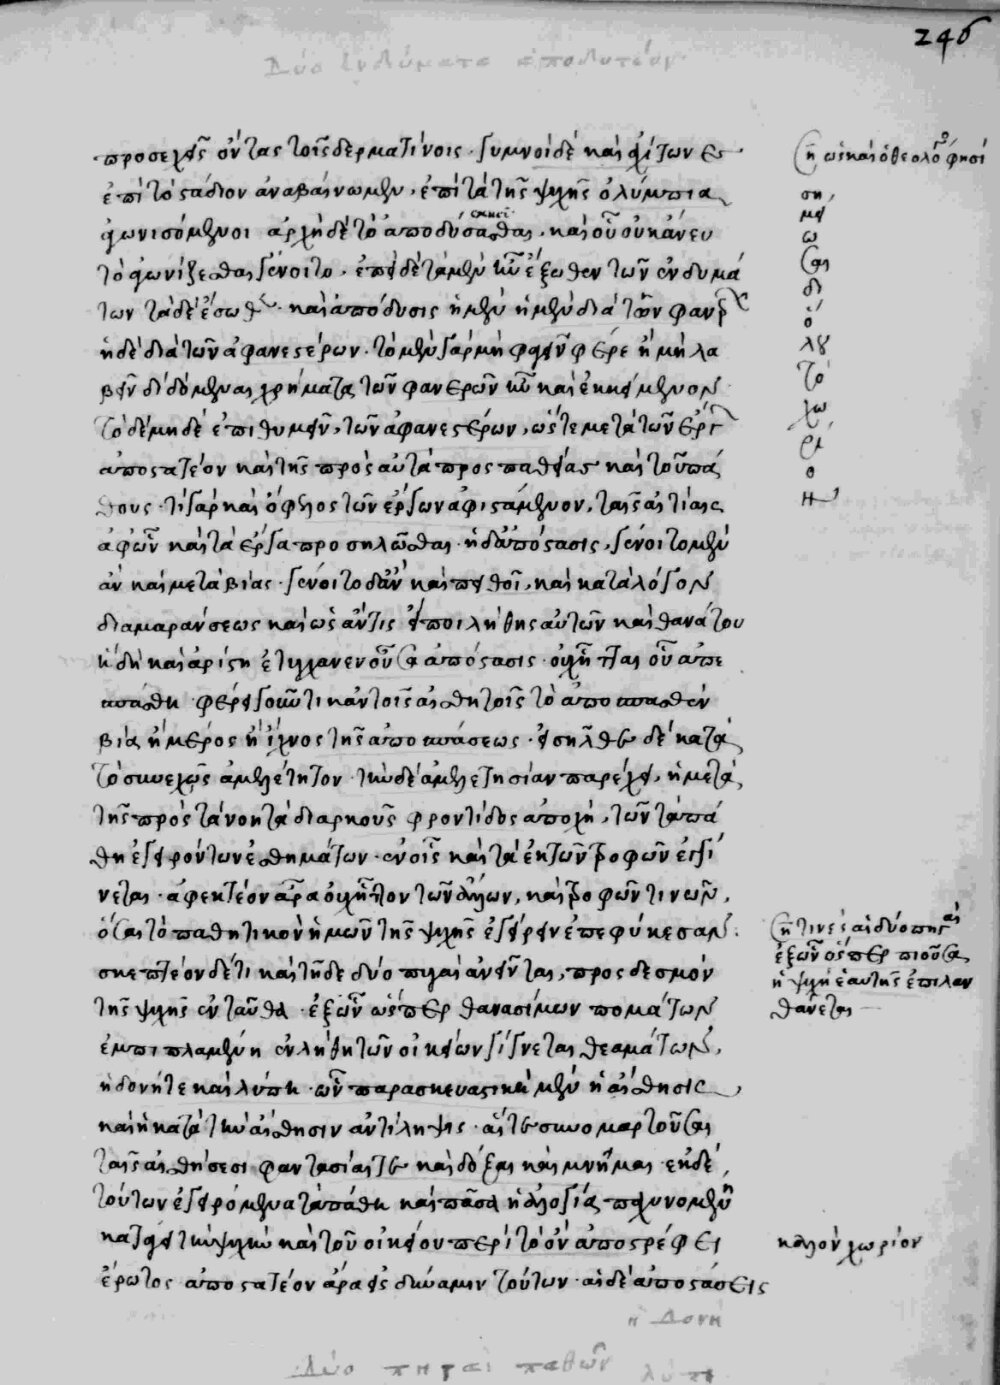 Δύο ἐνδύματα ἀποδυτέον
246
προσεχεῖς ὄντας τοῖς δερματίνοις. γυμνοὶ δὲ καὶ ἀχίτωνες
ἐπὶ τὸ στάδιον ἀναβαίνωμεν, ἐπὶ τὰ τῆς ψυχῆς ὀλύμπια
ἀγωνισόμενοι· ἀρχὴ δὲ τὸ ἀποδύσασθαι, καὶ οὗ οὐκ ἄνευ
τὸ ἀγωνίζεσθαι γένοιτο. ἐπεὶ δὲ τὰ μὲν ἦν ἔξωθεν τῶν ἐνδυμά
των τὰ δὲ ἔσωθεν· καὶ ἀπόδυσις ἡ μὲν ἡ μὲν διὰ τῶν φανερῶν
ἡ δὲ διὰ τῶν ἀφανεστέρων. τὸ μὲν γὰρ μὴ φαγεῖν φέρε ἢ μὴ λα
βεῖν διδόμενα χρήματα τῶν φανερῶν ἦν καὶ ἐκκείμενον·
τὸ δὲ μηδὲ ἐπιθυμεῖν, τῶν ἀφανεστέρων, ὥστε μετὰ τῶν ἔργων
ἀποστατέον καὶ τῆς πρὸς αὐτὰ προσπαθείας καὶ τοῦ πά
θους. τί γὰρ καὶ ὄφελος τῶν ἔργων ἀφιστάμενον, ταῖς αἰτίαις
ἀφ' ὧν καὶ τὰ ἔργα προσηλῶσθαι. ἡ δ' ἀπόστασις, γένοιτο μὲν
ἂν καὶ μετὰ βίας. γένοιτο δ' ἂν καὶ πειθοῖ, καὶ κατὰ λόγον
διὰ μαράνσεως καὶ ὡς ἄν τις εἴποι λήθης αὐτῶν καὶ θανάτου
ἡ δὴ καὶ ἀρίστη ἐτύγχανεν οὖσα ἀπόστασις. οὐχ ἧπται οὗ ἀπε
σπάσθη. φέρει γοῦν τι κἀν τοῖς αἰσθητοῖς τὸ ἀποσπασθὲν
βίᾳ ἢ μέρος ἢ ἴχνος τῆς ἀποσπάσεως. εἰσῆλθε δὲ κατὰ
τὸ συνεχῶς ἀμελέτητον. τὴν δὲ ἀμελετησίαν παρέχει, ἡ μετὰ
τῆς πρὸς τὰ νοητὰ διαρκοῦς φροντίδος ἀποχή, τῶν τὰ πά
θη ἐγειρόντων αἰσθημάτων. ἐν οἷς καὶ τὰ ἐκ τῶν τροφῶν ἐγγί
νεται. ἀφεκτέον ἄρα οὐχ ἧττον τῶν ἄλλων, καὶ τροφῶν τινων,
ὅσαι τὸ παθητικὸν ἡμῶν τῆς ψυχῆς ἐγείρειν ἐπεφύκεσαν.
σκεπτέον δέ τι καὶ τῇδε δύο πηγαὶ ἀνεῖνται, πρὸς δεσμὸν
τῆς ψυχῆς ἐνταῦθα. ἐξ ὧν ὥσπερ θανασίμων πομάτων
ἐμπιπλαμένη ἐν λήθῃ τῶν οἰκείων γίγνεται θεαμάτων,
ἡδονή τε καὶ λύπη. ὧν παρασκευαστικὴ μὲν ἡ αἴσθησις
καὶ ἡ κατὰ τὴν αἴσθησιν ἀντίληψις. αἵ τε συνομαρτοῦσαι
ταῖς αἰσθήσεσι φαντασίαι τε καὶ δόξαι καὶ μνῆμαι. ἐκ δὲ
τούτων ἐγειρόμενα τὰ πάθη καὶ πᾶσα ἡ ἀλογία παχυνομένη
κατάγει τὴν ψυχὴν καὶ τοῦ οἰκείου περὶ τὸ ὂν ἀποστρέφει
ἔρωτος ἀποστατέον ἄρα εἰς δύναμιν τούτων. αἱ δὲ ἀποστάσεις
ση
μεί
ω
σαι
δι
ό
λου
τὸ
χω
ρί
ο
ν
τίνες αἱ δύο πηγαὶ
ἐξ ὧν ὥσπερ πιοῦσα
ἡ ψυχὴ ἑαυτῆς ἐπιλαν
θάνεται
καλὸν χωρίον
ἡδονή
Δύο πηγαὶ παθῶν λύπη